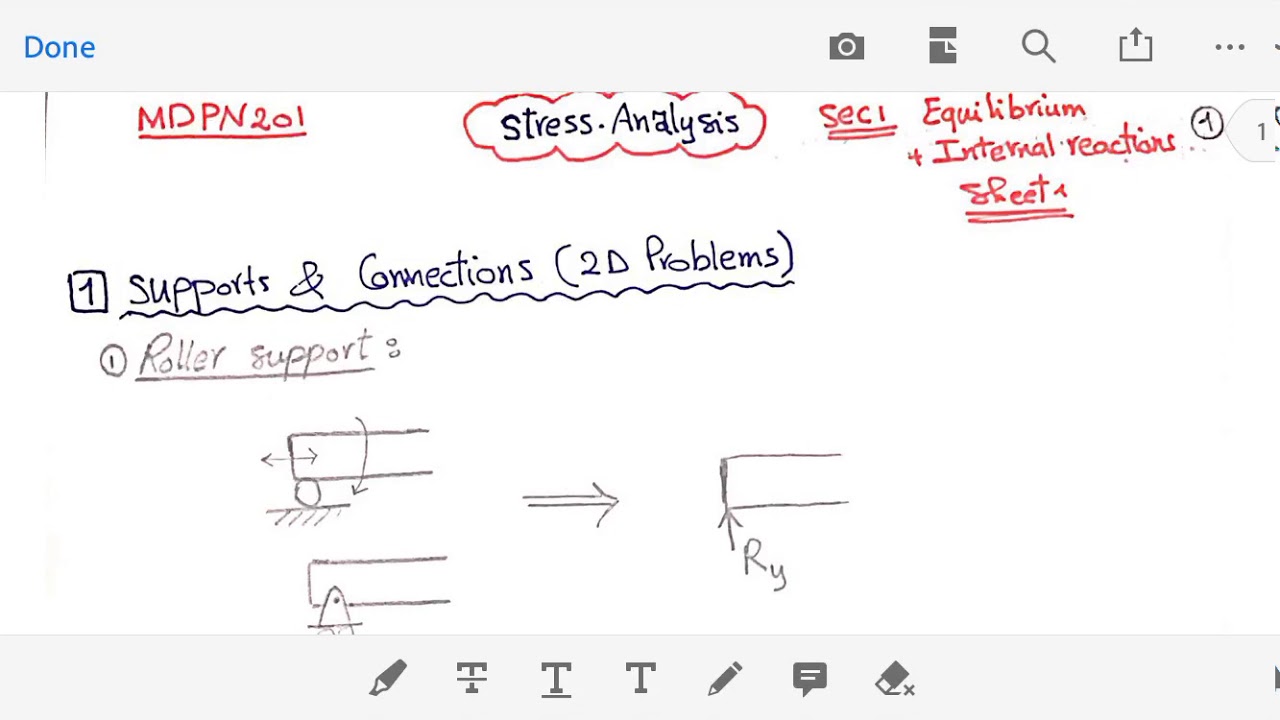 Done
MDPN201
Stress Analysis
Sec1 Equilibrium
+ Internal reactions
Sheet 1
1
1
1 Supports & Connections (2D Problems)
1 Roller support:
Ry
T T T